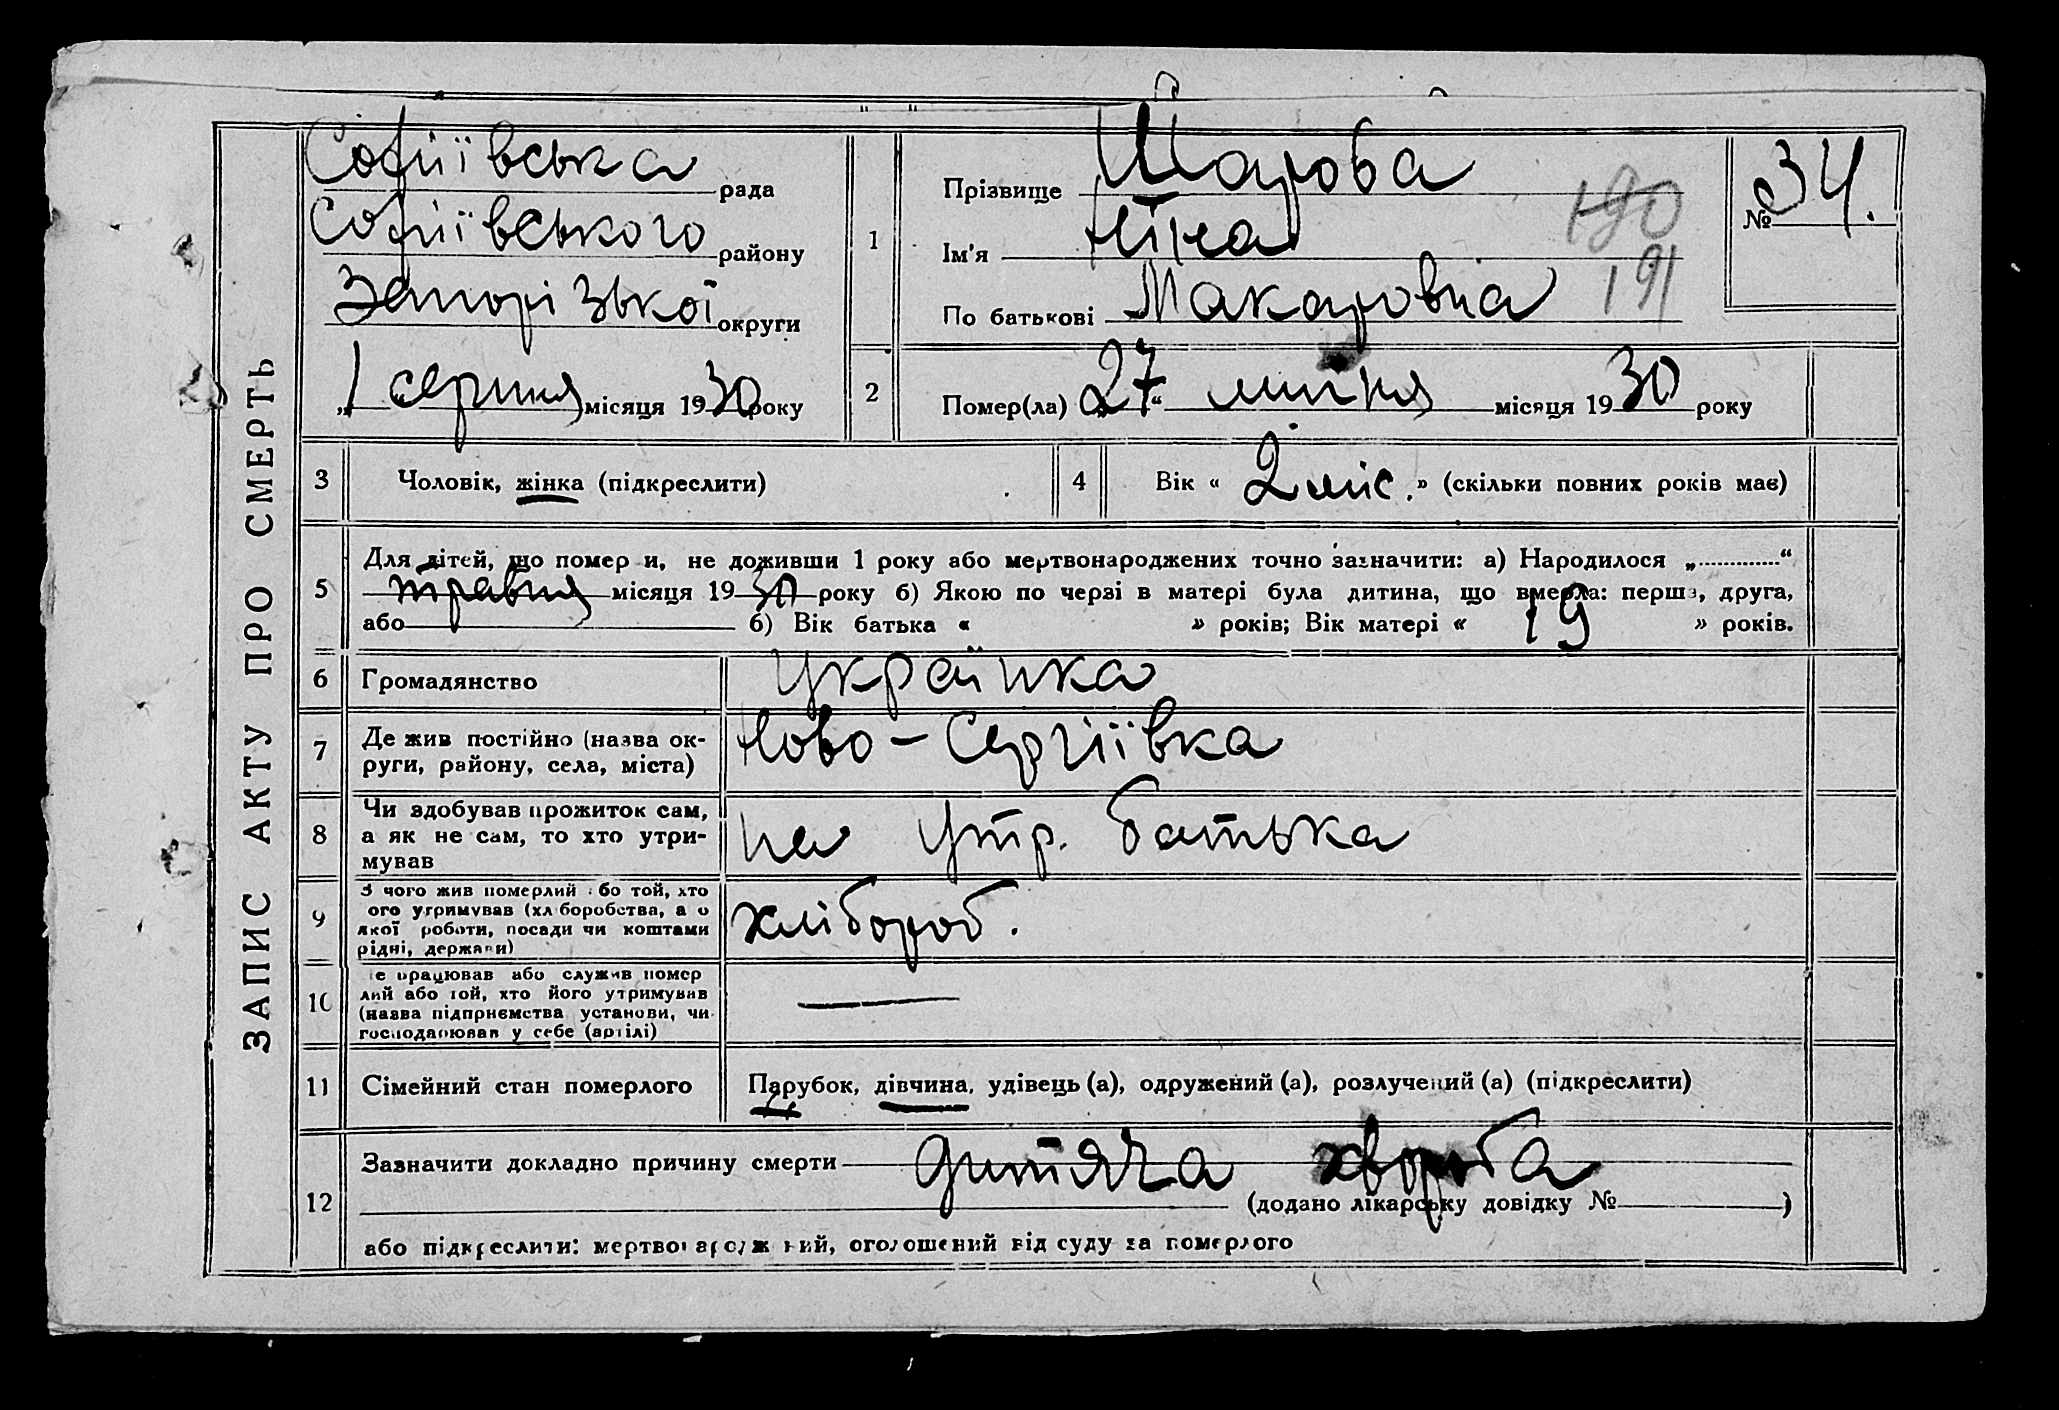 ЗАПИС АКТУ ПРО СМЕРТЬ
Софіївська рада
Софіївського району
Запорізької округи
„1 серпня місяця 1930 року
1
Прізвище Шарова
Ім'я Ніна
По батькові Макаровна
190
191
№ 34.
2
Помер(ла) „27“ липня місяця 1930 року
3
Чоловік, жінка (підкреслити)
4
Вік « 2 міс. » (скільки повних років має)
5
Для дітей, що помер и, не доживши 1 року або мертвонароджених точно зазначити: а) Народилося „..............“
травня місяця 1930 року б) Якою по черзі в матері була дитина, що вмерла: перша, друга,
або 6) Вік батька « » років; Вік матері « 19 » років.
6
Громадянство
Українка
7
Де жив постійно (назва ок-
руги, району, села, міста)
Ново-Сергіївка
8
Чи здобував прожиток сам,
а як не сам, то хто утри-
мував
на утр. батька
9
З чого жив померлий або той, хто
ого утримував (хл боробства, а о
якої роботи, посади чи коштами
рідні, держави)
хлібороб.
10
е працював або служив помер
лий або той, хто його утримував
(назва підприємства установи, чи
господарював у себе (артілі)
—
11
Сімейний стан померлого
Парубок, дівчина, удівець (а), одружений (а), розлучений (а) (підкреслити)
12
Зазначити докладно причину смерти дитяча хвороба
(додано лікарську довідку № )
або підкреслити: мертвонароджений, оголошений від суду за померлого